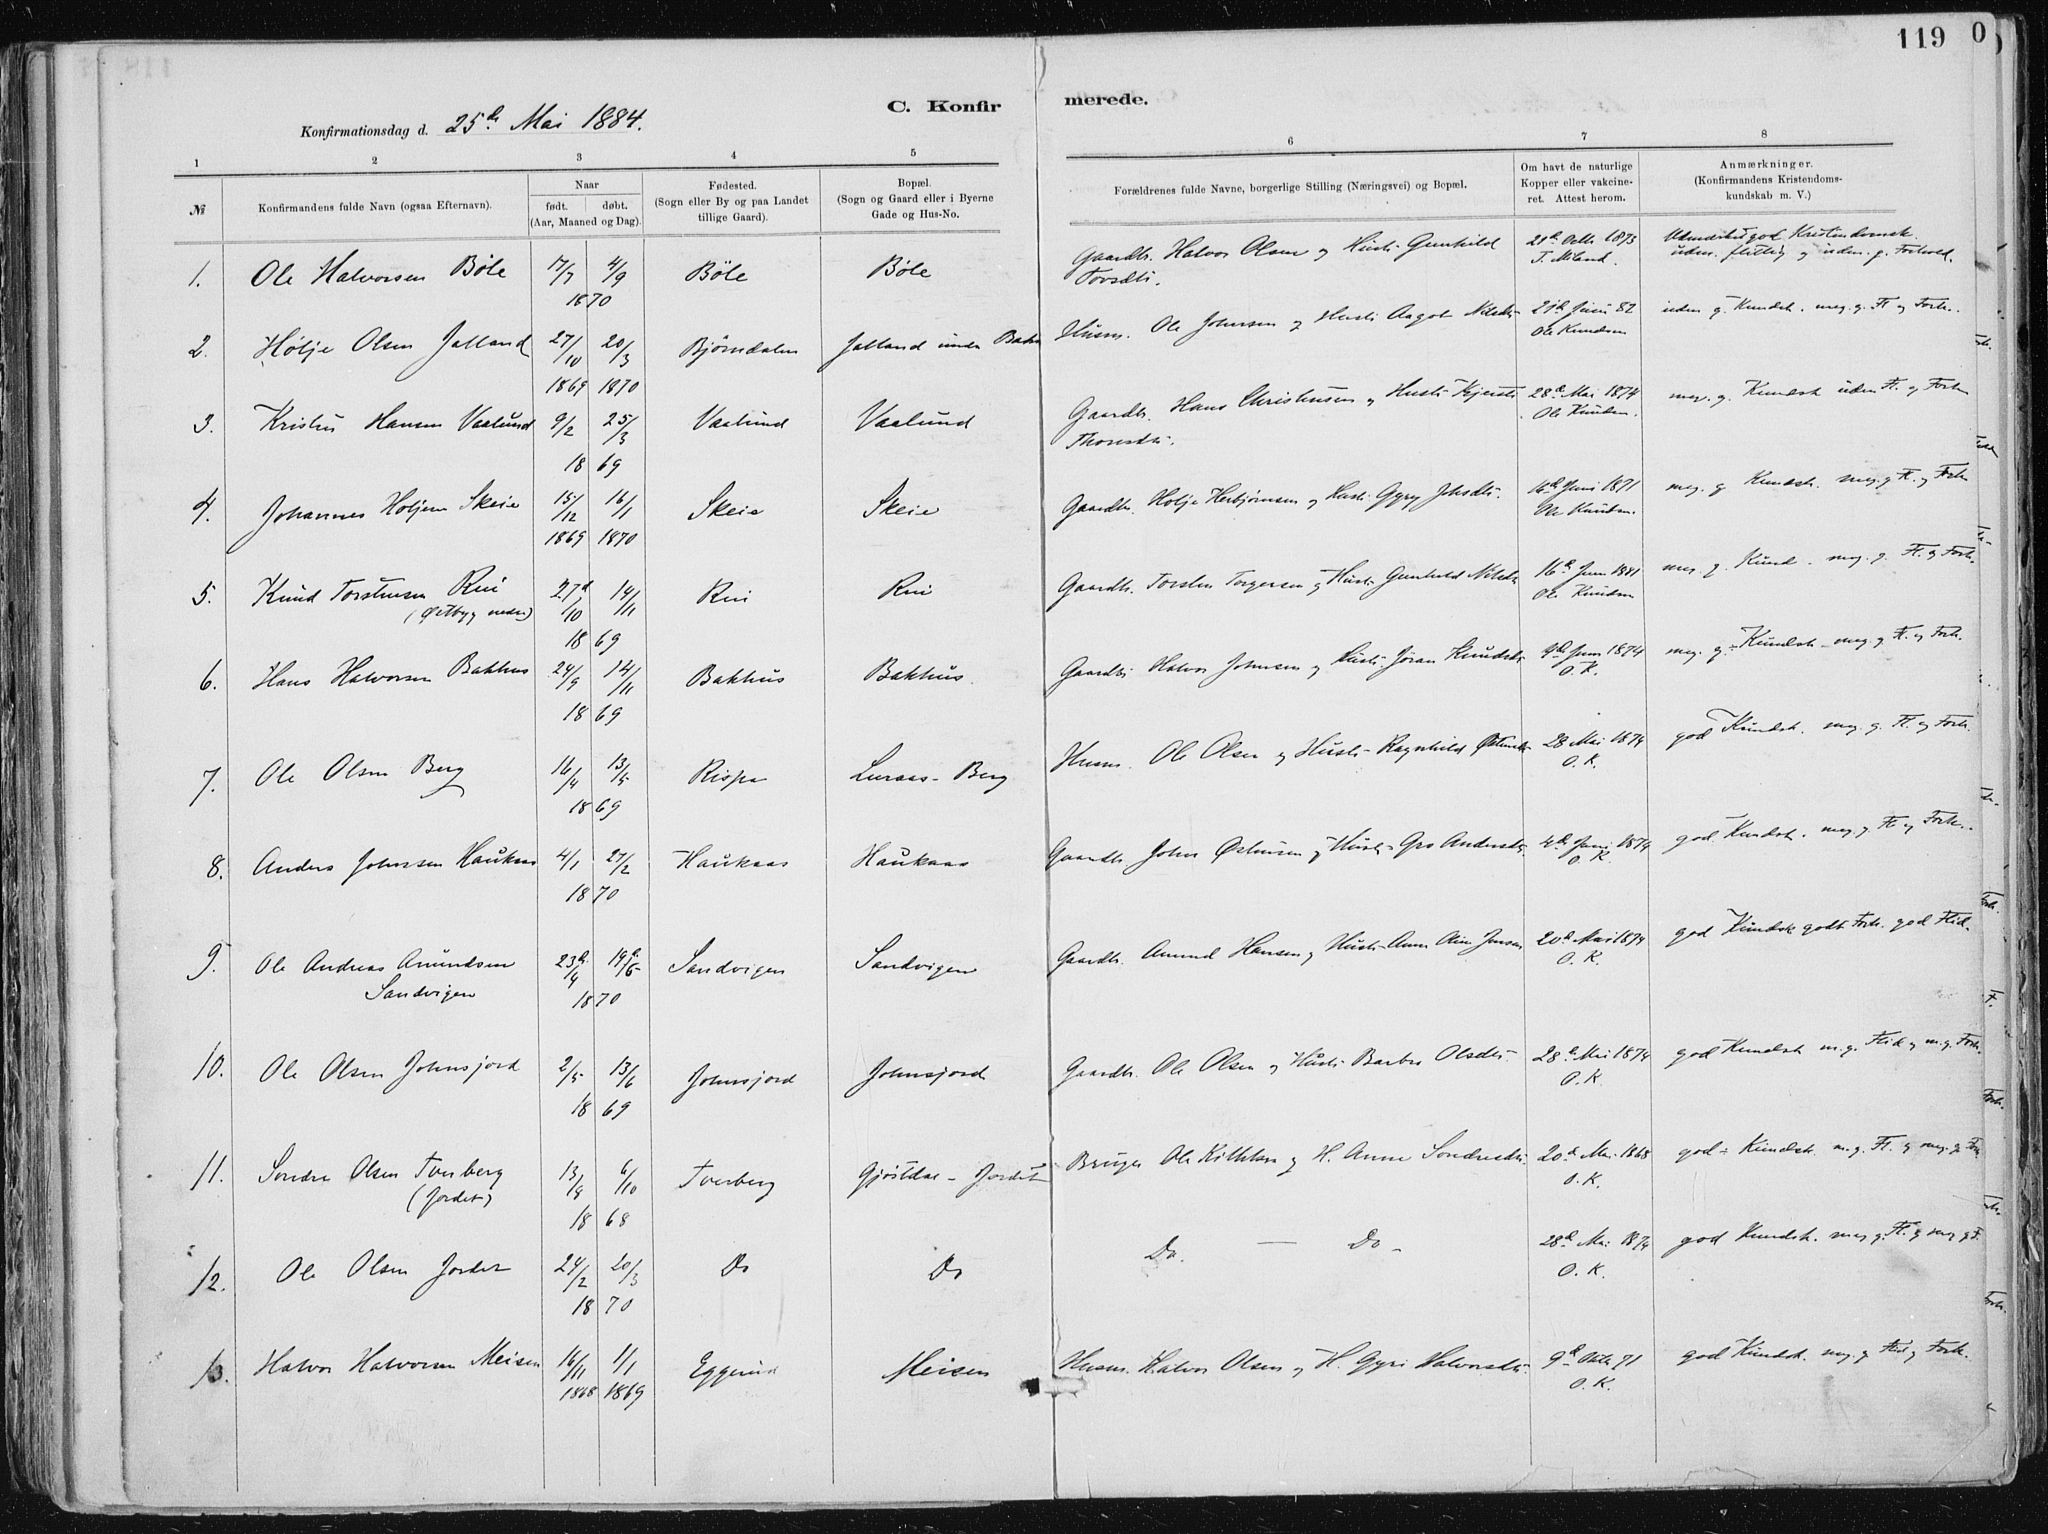 119 0
C. Konfirmerede.
Konfirmationsdag d. 25de Mai 1884.
1 2 3 4 5 6 7 8
№
Konfirmandens fulde Navn (ogsaa Efternavn).
Naar
født. døbt.
(Aar, Maaned og Dag).
Fødested.
(Sogn eller By og paa Landet
tillige Gaard).
Bopæl.
(Sogn og Gaard eller i Byerne
Gade og Hus-No.
Forældrenes fulde Navne, borgerlige Stilling (Næringsvei) og Bopæl.
Om havt de naturlige
Kopper eller vakcine-
ret. Attest herom.
Anmærkninger.
(Konfirmandens Kristendoms-
kundskab m. V.)
1. Ole Halvorsen Bøle 17/7 4/9 1870 Bøle Bøle Gaardbr. Halvor Olsen og Hustr. Gunhild
Tovsdtr. 21de Octbr 1873
2. Høljе Olsen Jalland 27/10 1869 20/3 1870 Bjørndalen Jalland under Husm. Ole Johnsen og Hustr. Aagot Nilsdtr. 21de Juni 82
Ole Knudsen meg. g. Fl. og Forh.
3. Kristen Hansen Vaalund 9/2 25/3 1869 Vaalund Vaalund Gaardbr. Hans Christensen og Hustr. Kjersti
Thorsdtr. 28de Mai 1874
Ole Knudsen. meg. g. Kundsk. uden Fl. og Forh.
4. Johannes Holjesen Skeie 15/12 1869 16/1 1870 Skeie Skeie Gaardbr. Holje Herbjørnsen og Hustr. Gyry 16de Juni 1871
Ole Knudsen. meg. g. Kundsk. meg. g. Fl. og Forh.
5. Knud Torstensen Rui 27d/10 14/11 1869 Rui Rui Gaardbr. Torsten Torgersen og Hustr. Gunhild Nilsdtr. 16de Juni 1881
Ole Knudsen meg. g. Kund. meg. g. Fl. og Forh.
6. Hans Halvorsen Bakhus 24/9 14/11 1869 Bakhus Bakhus. Gaardbr. Halvor Johnsen og Hustr. Jøran Knudsdtr. 4de Juni 1874
O. K. meg. g. Kundsk. meg. g. Fl. og Forh.
7. Ole Olsen Berg 16/4 13/5 1869 Rispa Luraas - Berg Husm. Ole Olsen og Hustr. Ragnhild Østensdtr. 28 Mai 1874
O. K. god Kundsk. meg. g. Fl. og Forh.
8. Anders Johnsen Haukaas 4/1 27/2 1870 Haukaas Haukaas Gaardbr. John Østensen og Hustr. Gro Andersdtr. 4de Juni 1874
O. K. god Kundsk. meg. g. Fl. og Forh.
9. Ole Andreas Amundsen
Sandvigen 23de/4 19de/6 1870 Sandvigen Sandvigen Gaardbr. Amund Hansen og Hustr. Anne 20de Mai 1874
O. K. god Kundsk. godt Forh. god Flid.
10. Ole Olsen Johnsjord 2/5 13/6 1869 Johnsjord Johnsjord Gaardbr. Ole Olsen og Hustr. Barbro Olsdtr. 28de Mai 1874
O. K. god Kundsk. m. g. Flid og m. g. Forh.
11. Sondre Olsen Tverberg
(Jordet) 13/9 6/10 1868 Tverberg Gjøsdal - Jordet Bruger Ole Kittilsen og H. Anne Sondresdtr. 20de Mai 1868
O. K. god Kundsk. m. g. Fl. og meg. g. F.
12. Ole Olsen Jordet 24/2 20/3 1870 Do Do Do. — Do - 28de Mai 1874
O. K. god Kundsk. meg. g. Fl. og meg. g. F.
13. Halvor Halvorsen Meisen 16/11 1868 1/1 1869 Eggerud Meisen Husm. Halvor Olsen og H. Gyri Halvorsdtr. 9de Octbr 71
O. K. god Kundsk. meg. g. Flid og Forh.